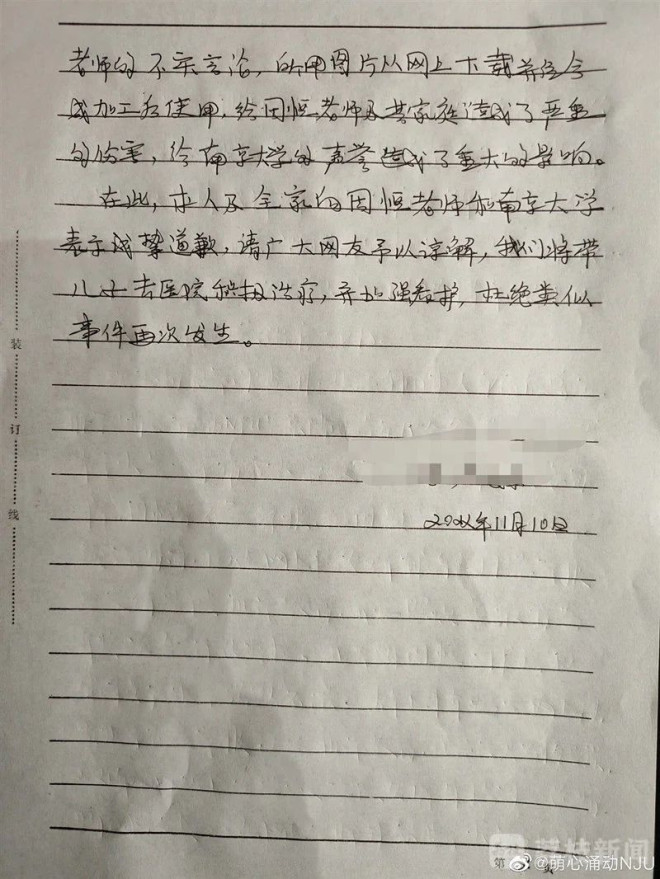 老师的不实言论，所用图片从网上下载并经合
成加工后使用，给周恒老师及其家庭造成了严重
的伤害，给南京大学的声誉造成了重大的影响。
在此，本人及全家向周恒老师和南京大学
表示诚挚道歉，请广大网友予以谅解，我们将带
儿子去医院积极治疗，并加强看护，杜绝类似
事件再次发生。
年11月10日
装
订
线
第 3 页
新闻
@萌心涌动NJU